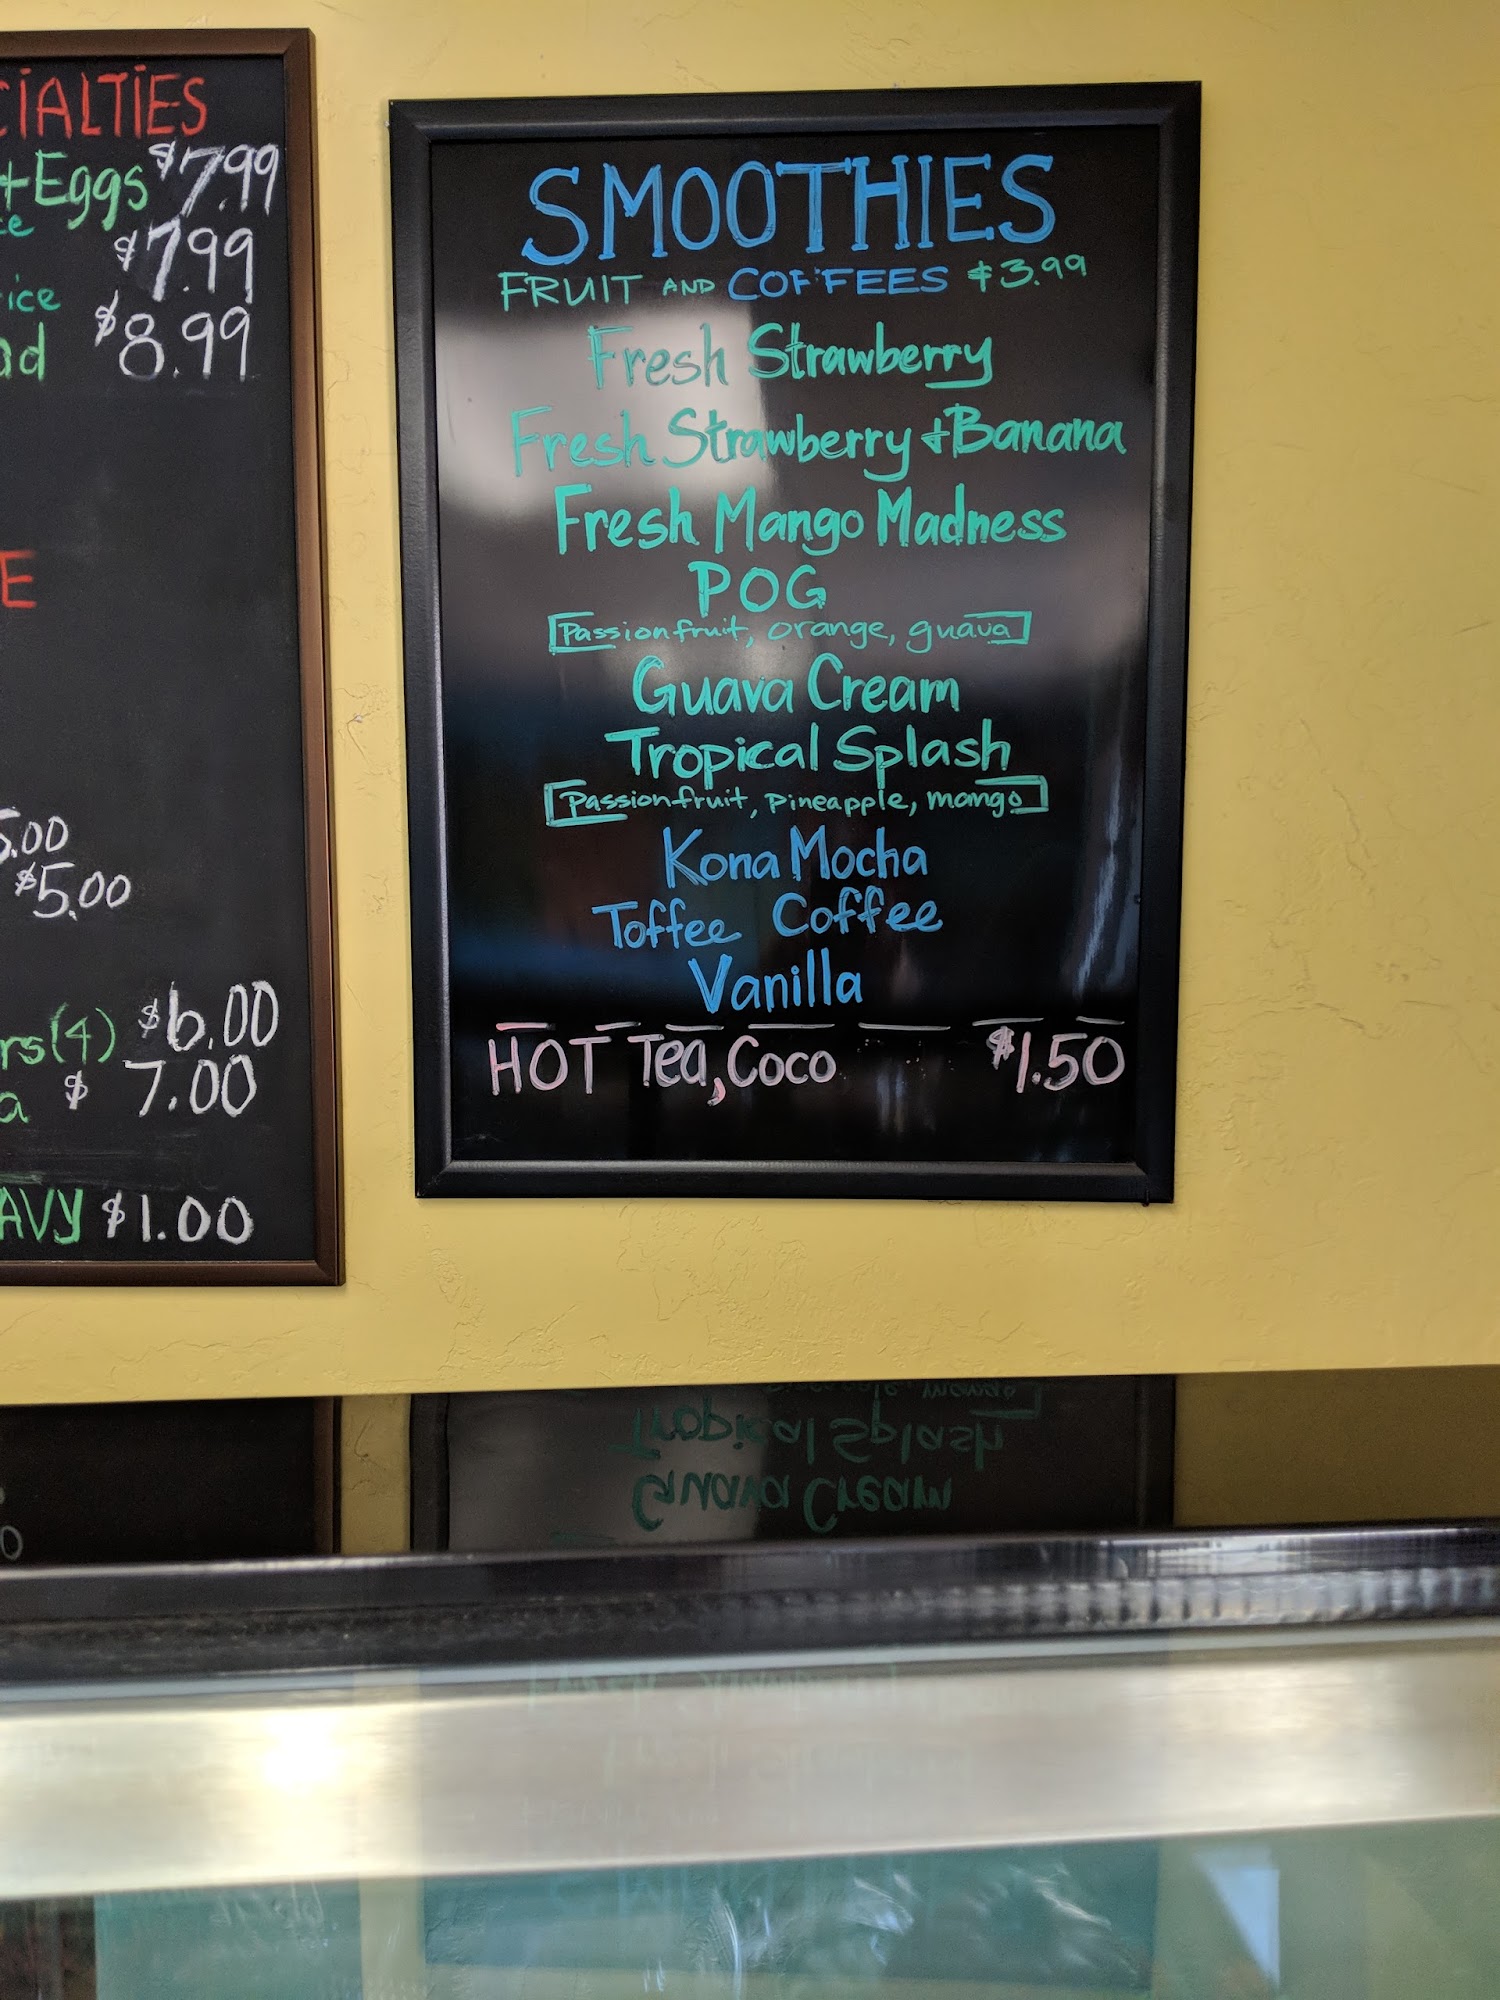 CIALTIES
+Eggs $7.99
ce $7.99
rice
ad $8.99
E
5.00
$5.00
rs(4) $6.00
a $ 7.00
AVY $1.00
SMOOTHIES
FRUIT AND COFFEES $3.99
Fresh Strawberry
Fresh Strawberry + Banana
Fresh Mango Madness
POG
[Passionfruit, orange, guava]
Guava Cream
Tropical Splash
[Passionfruit, pineapple, mango]
Kona Mocha
Toffee Coffee
Vanilla
HOT Tea, Coco $1.50